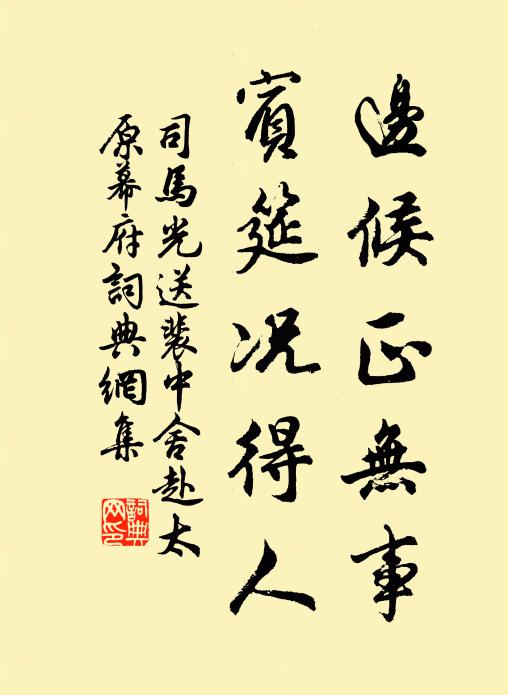 邊候正無事
賓筵況得人
司馬光送裴中舍赴太
原幕府詞典網集
詞典
网印